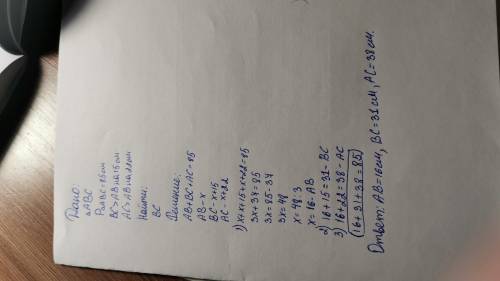 Дано:
△ABC
P△ABC=85см
BC>AB на 15 см
AC>AB на 22 см
Найти:
BC
Решение:
AB+BC+AC=85
AB-x
BC-x+15
AC-x+22
1) x+x+15+x+22=85
3x+37=85
3x=85-37
3x=48
x=48:3
x=16-AB
2) 16+15=31-BC
3) 16+22=38-AC
(16+31+38=85)
Ответ: AB=16см, BC=31см, AC=38см.